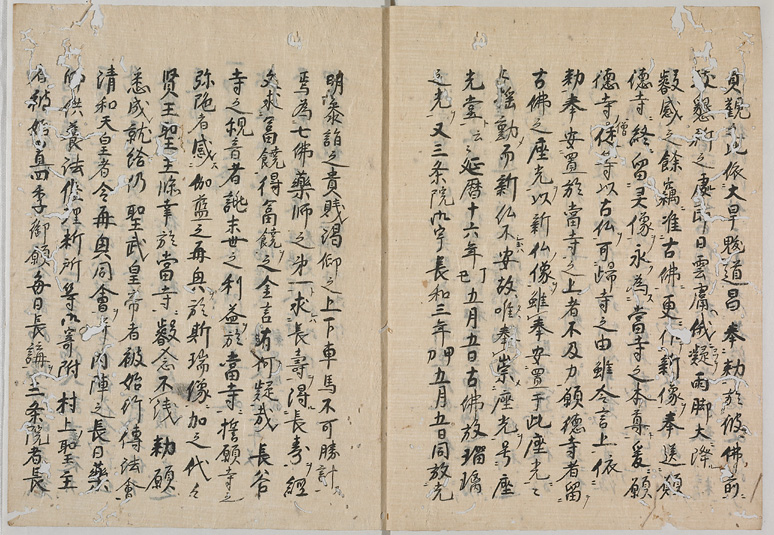 貞観年比依大旱魃道昌奉勅於彼佛前
致懇祈之處即日雲膚俄凝雨脚大降
叡感之餘竊准古佛更作新像奉送願
德寺終留灵像永為當寺之本尊爰願
德寺住僧等以古仏可歸寺之由雖令言上依
勅奉安置於當寺之上者不及力願德寺者留
古佛之座光以新仏像雖奉安置于此座光々
与揺動而新仏不安故唯奉崇座光号座
光堂云々延暦十六年丁丑五月五日古佛放瑠璃
之光又三条院御宇長和三年甲刁五月五日同放光
明参詣之貴賎渇仰之上下車馬不可勝計
焉為七佛薬師之第一求長寿得長寿経
文求冨饒得冨饒之金言有何疑哉長谷
寺之観音者託末世之利益於當寺誓願寺之
弥陁者感伽藍之再興於斯瑞像加之代々
賢王聖主臨幸於當寺叡念不浅勅願
悉成就給仍聖武皇帝者被始行傳法會
清和天皇者令再興同會并内陣之長日薬
師供養法修理料所等御寄附村上聖主
者被始置四季御願毎日長講三条院者長